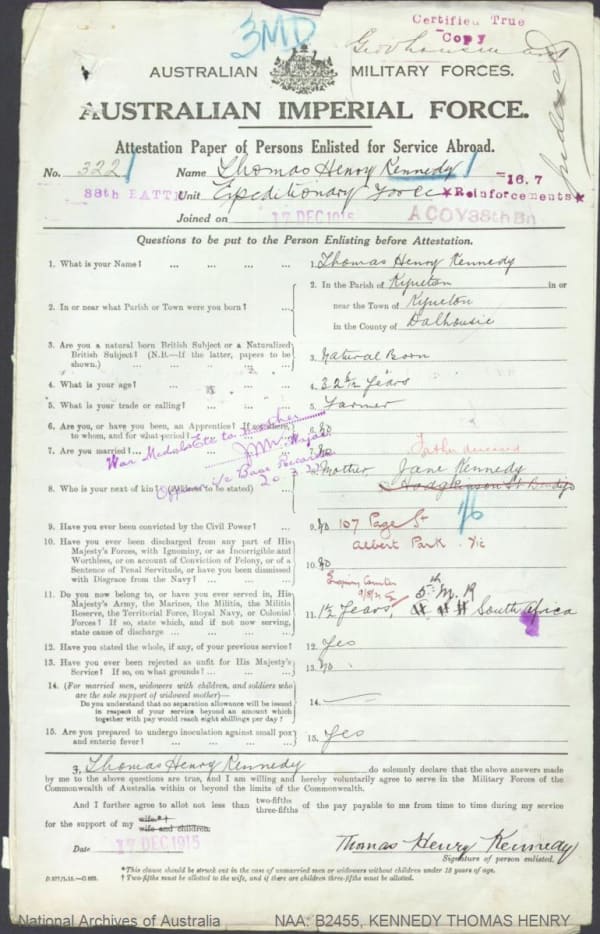 Certified True
Copy
3MD
AUSTRALIAN MILITARY FORCES.
AUSTRALIAN IMPERIAL FORCE.
Attestation Paper of Persons Enlisted for Service Abroad.
Indexed
No. 3221 Name Thomas Henry Kennedy
16.7
38th BATT Unit Expeditionary Force *Reinforcements*
Joined on 17 DEC 1915 A COY 38th Bn
Questions to be put to the Person Enlisting before Attestation.
1. What is your Name? ... ... ... ... 1. Thomas Henry Kennedy
2. In or near what Parish or Town were you born? ...
2. In the Parish of Kyneton in or
near the Town of Kyneton
in the County of Dalhousie
3. Are you a natural born British Subject or a Naturalized
British Subject? (N.B.—If the latter, papers to be
shown.) ... ... ... ... 3. Natural Born
4. What is your age? ... ... ... 4. 32 1/2 Years
5. What is your trade or calling? ... ... ... 5. Farmer
6. Are you, or have you been, an Apprentice? If so where,
to whom, and for what period? ... 6. No
7. Are you married? ... 7. No
Father deceased
War Medals Etc to Mother
Officer i/c Base Records
8. Who is your next of kin? (Address to be stated) ... 8. Mother, Jane Kennedy
Hodgkinson St Bendigo
107 Page St
Albert Park Vic
9. Have you ever been convicted by the Civil Power? ... 9. No
10. Have you ever been discharged from any part of His
Majesty's Forces, with Ignominy, or as Incorrigible and
Worthless, or on account of Conviction of Felony, or of a
Sentence of Penal Servitude, or have you been dismissed
with Disgrace from the Navy? ... ... ... 10. No
11. Do you now belong to, or have you ever served in, His
Majesty's Army, the Marines, the Militia, the Militia
Reserve, the Territorial Force, Royal Navy, or Colonial
Forces? If so, state which, and if not now serving,
state cause of discharge ... ... ...
5th M. R
11. 1 1/2 Years, South Africa
12. Have you stated the whole, if any, of your previous service? 12. Yes
13. Have you ever been rejected as unfit for His Majesty's
Service? If so, on what grounds? ... ... ... 13. No
14. (For married men, widowers with children, and soldiers who
are the sole support of widowed mother)—
Do you understand that no separation allowance will be issued
in respect of your service beyond an amount which
together with pay would reach eight shillings per day? 14. —
15. Are you prepared to undergo inoculation against small pox
and enteric fever? ... ... ... ... 15. Yes
I, Thomas Henry Kennedy do solemnly declare that the above answers made
by me to the above questions are true, and I am willing and hereby voluntarily agree to serve in the Military Forces of the
Commonwealth of Australia within or beyond the limits of the Commonwealth.
And I further agree to allot not less than two-fifths three-fifths of the pay payable to me from time to time during my service
for the support of my wife*†
wife and children.
Date 17 DEC 1915
Thomas Henry Kennedy
Signature of person enlisted.
*This clause should be struck out in the case of unmarried men or widowers without children under 18 years of age.
† Two-fifths must be allotted to the wife, and if there are children three-fifths must be allotted.
National Archives of Australia NAA: B2455, KENNEDY THOMAS HENRY